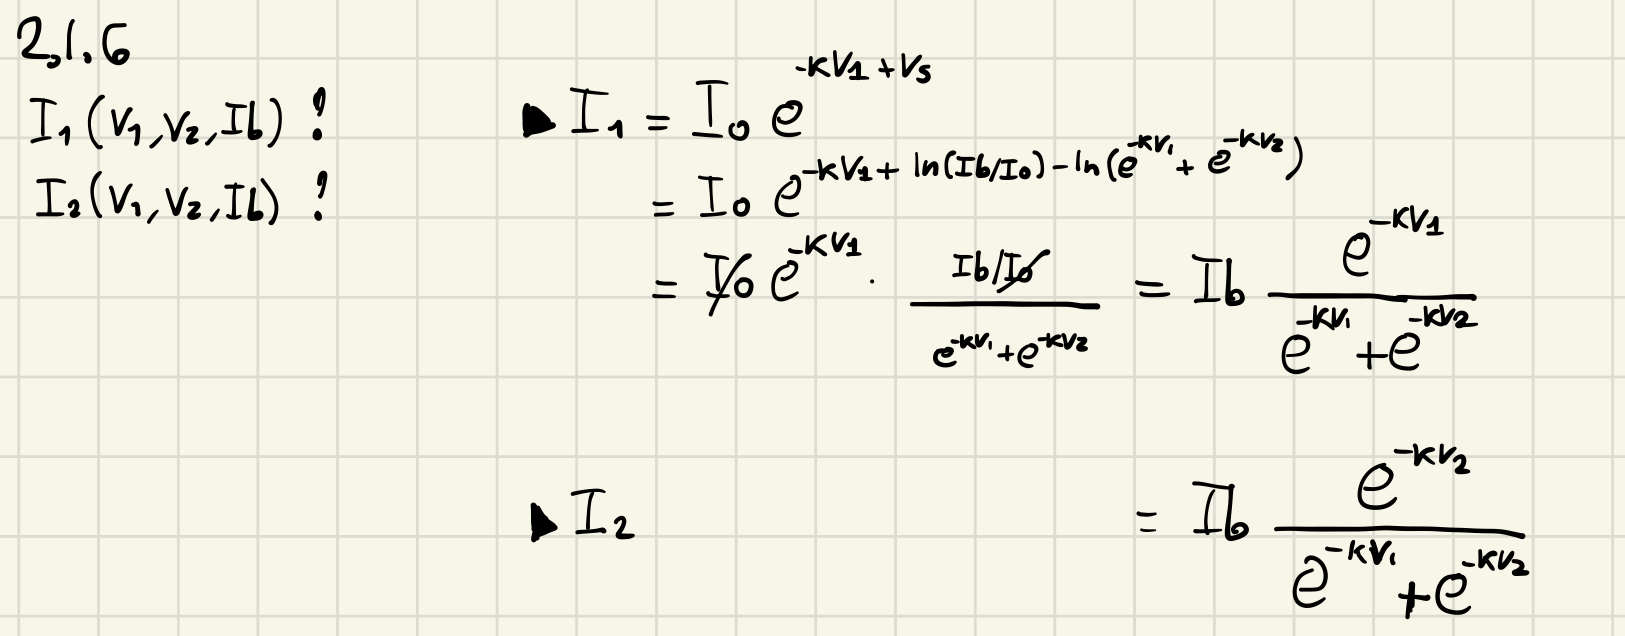 2.1.6
I₁(V₁,V₂,Ib)?
I₂(V₁,V₂,Ib)?
▶ I₁ = I₀ e^(-κV₁+Vs)
= I₀ e^(-κV₁ + ln(Ib/I₀) - ln(e^(-κV₁) + e^(-κV₂)))
= I₀ e^(-κV₁) · (Ib/I₀)/(e^(-κV₁)+e^(-κV₂)) = Ib e^(-κV₁)/(e^(-κV₁)+e^(-κV₂))
▶ I₂ = Ib e^(-κV₂)/(e^(-κV₁)+e^(-κV₂))